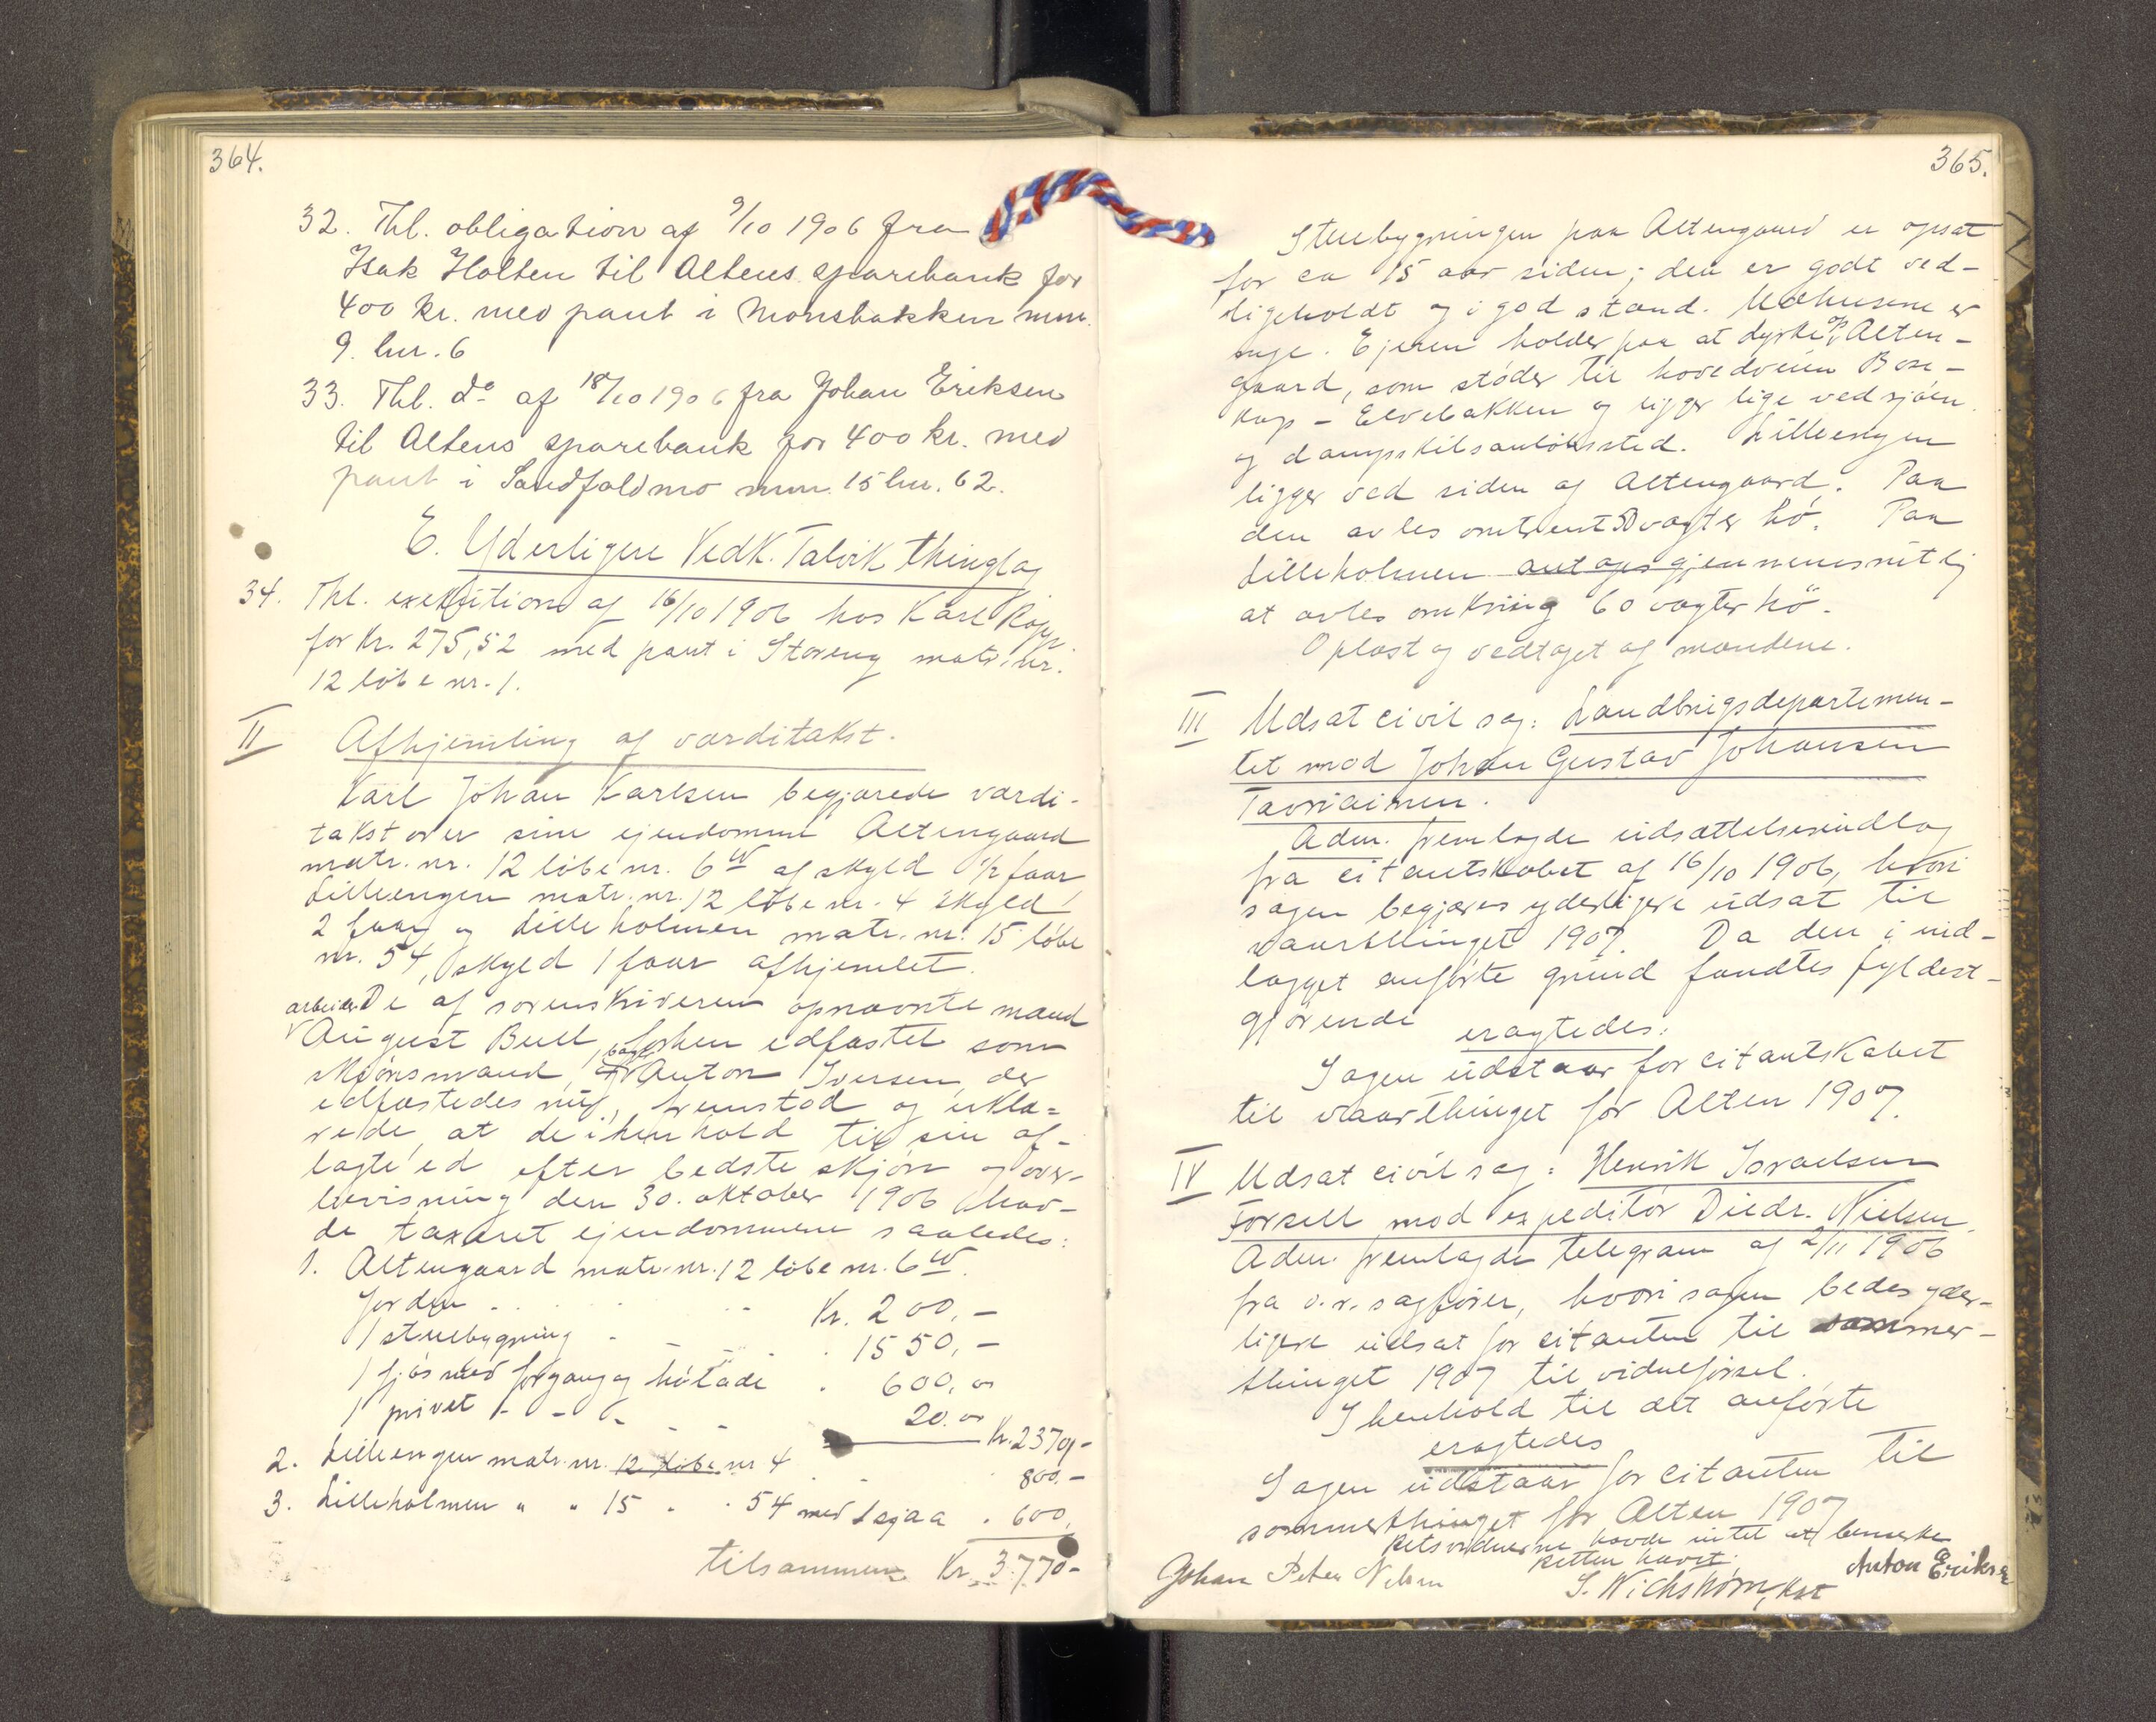 364.
32. Thl. obligation af 9/10 1906 fra
Isak Holten til Altens sparebank for
400 kr. med pant i Monsbakken mnr.
9. lnr. 6
33. Thl. do af 18/10 1906 fra Johan Eriksen
til Altens sparebank for 400 kr. med
pant i Sandfaldmo mnr. 15 lnr. 62.
E. Yderligere Vedk. Talvik thinglag
34. Thl. exekution af 16/10 1906 hos Karl
for kr. 275,52 med pant i Storeng matr. nr.
12 löbe nr. 1.
II Afhjemling af værditakst.
Karl Johan Karlsen begjærede værdi-
takst over sine ejendomme Altengaard
matr. nr. 12 löbe nr. 6 af skyld 1/2 faar
Lilleengen matr. nr. 12 löbe nr. 4 skyld
2 faar og Lilleholmen matr. nr. 15 löbe
nr. 54, skyld 1 faar afhjemlet.
De af sorenskriveren opnævnte mænd
arbeider August Bull, forhen edfæstet som
skjönsmand, Anton Iversen, der
edfæstedes nu, fremstod og erklæ-
rede, at de i henhold til sin af-
lagte ed efter bedste skjön og over-
bevisning den 30. oktober 1906 hav-
de taxeret ejendommene saaledes:
1. Altengaard matr. nr. 12 löbe nr. 6
Jorden . . . . Kr. 200,-
1 stuebygning - - . . 1550,-
1 fjös med forgang og hölade . 600,00
1 privet - - - - - 20.00
Kr. 2370,-
2. Lilleengen matr. nr. 12 löbe nr 4 . . 800,-
3. Lilleholmen " " 15 " " 54 med 1 sjaa . 600,
tilsammen Kr. 3770-
365.
Stuebygningen paa Altengaard er opsat
for ca 15 aar siden; den er godt ved-
ligeholdt og i god stand. Udhusene er
nye. Ejeren holder paa at dyrke op Alten-
gaard, som stöder til hovedveien Bose-
kop - Elvebakken og ligger lige ved sjöen
og dampskibsanlöbssted. Lilleengen
ligger ved siden af Altengaard. Paa
den avles omtrent 50 vogter hö. Paa
Lilleholmen antages gjennemsnitlig
at avles omkring 60 vogter hö.
Oplæst og vedtaget af mændene.
III Udsat civil sag: Landbrugsdepartemen-
tet mod Johan Gustav Johansen
Tavriainen.
Adm. fremlagde udsættelsesindlæg
fra citantskabet af 16/10 1906, hvori
sagen begjæres yderligere udsat til
vaarthinget 1907. Da den i ind-
lægget anförte grund fandtes fyldest-
gjörende
eragtedes:
Sagen udstaar for citantskabet
til vaarthinget for Alten 1907.
IV Udsat civil sag: Henrik Israelsen
Forsell mod expeditör Diedr. Nielsen.
Adm. fremlagde telegram af 2/11 1906
fra o.r.sagförer, hvori sagen bedes yder-
ligere udsat for citanten til sommer-
thinget 1907 til vidneförsel.
I henhold til det anförte
eragtedes
Sagen udstaar for citanten til
sommerthinget for Alten 1907
Retsvidnerne havde intet at bemerke
Retten hævet.
Johan Peter Nilsen
S. Wichstrøm, kst
Anton Eriksen